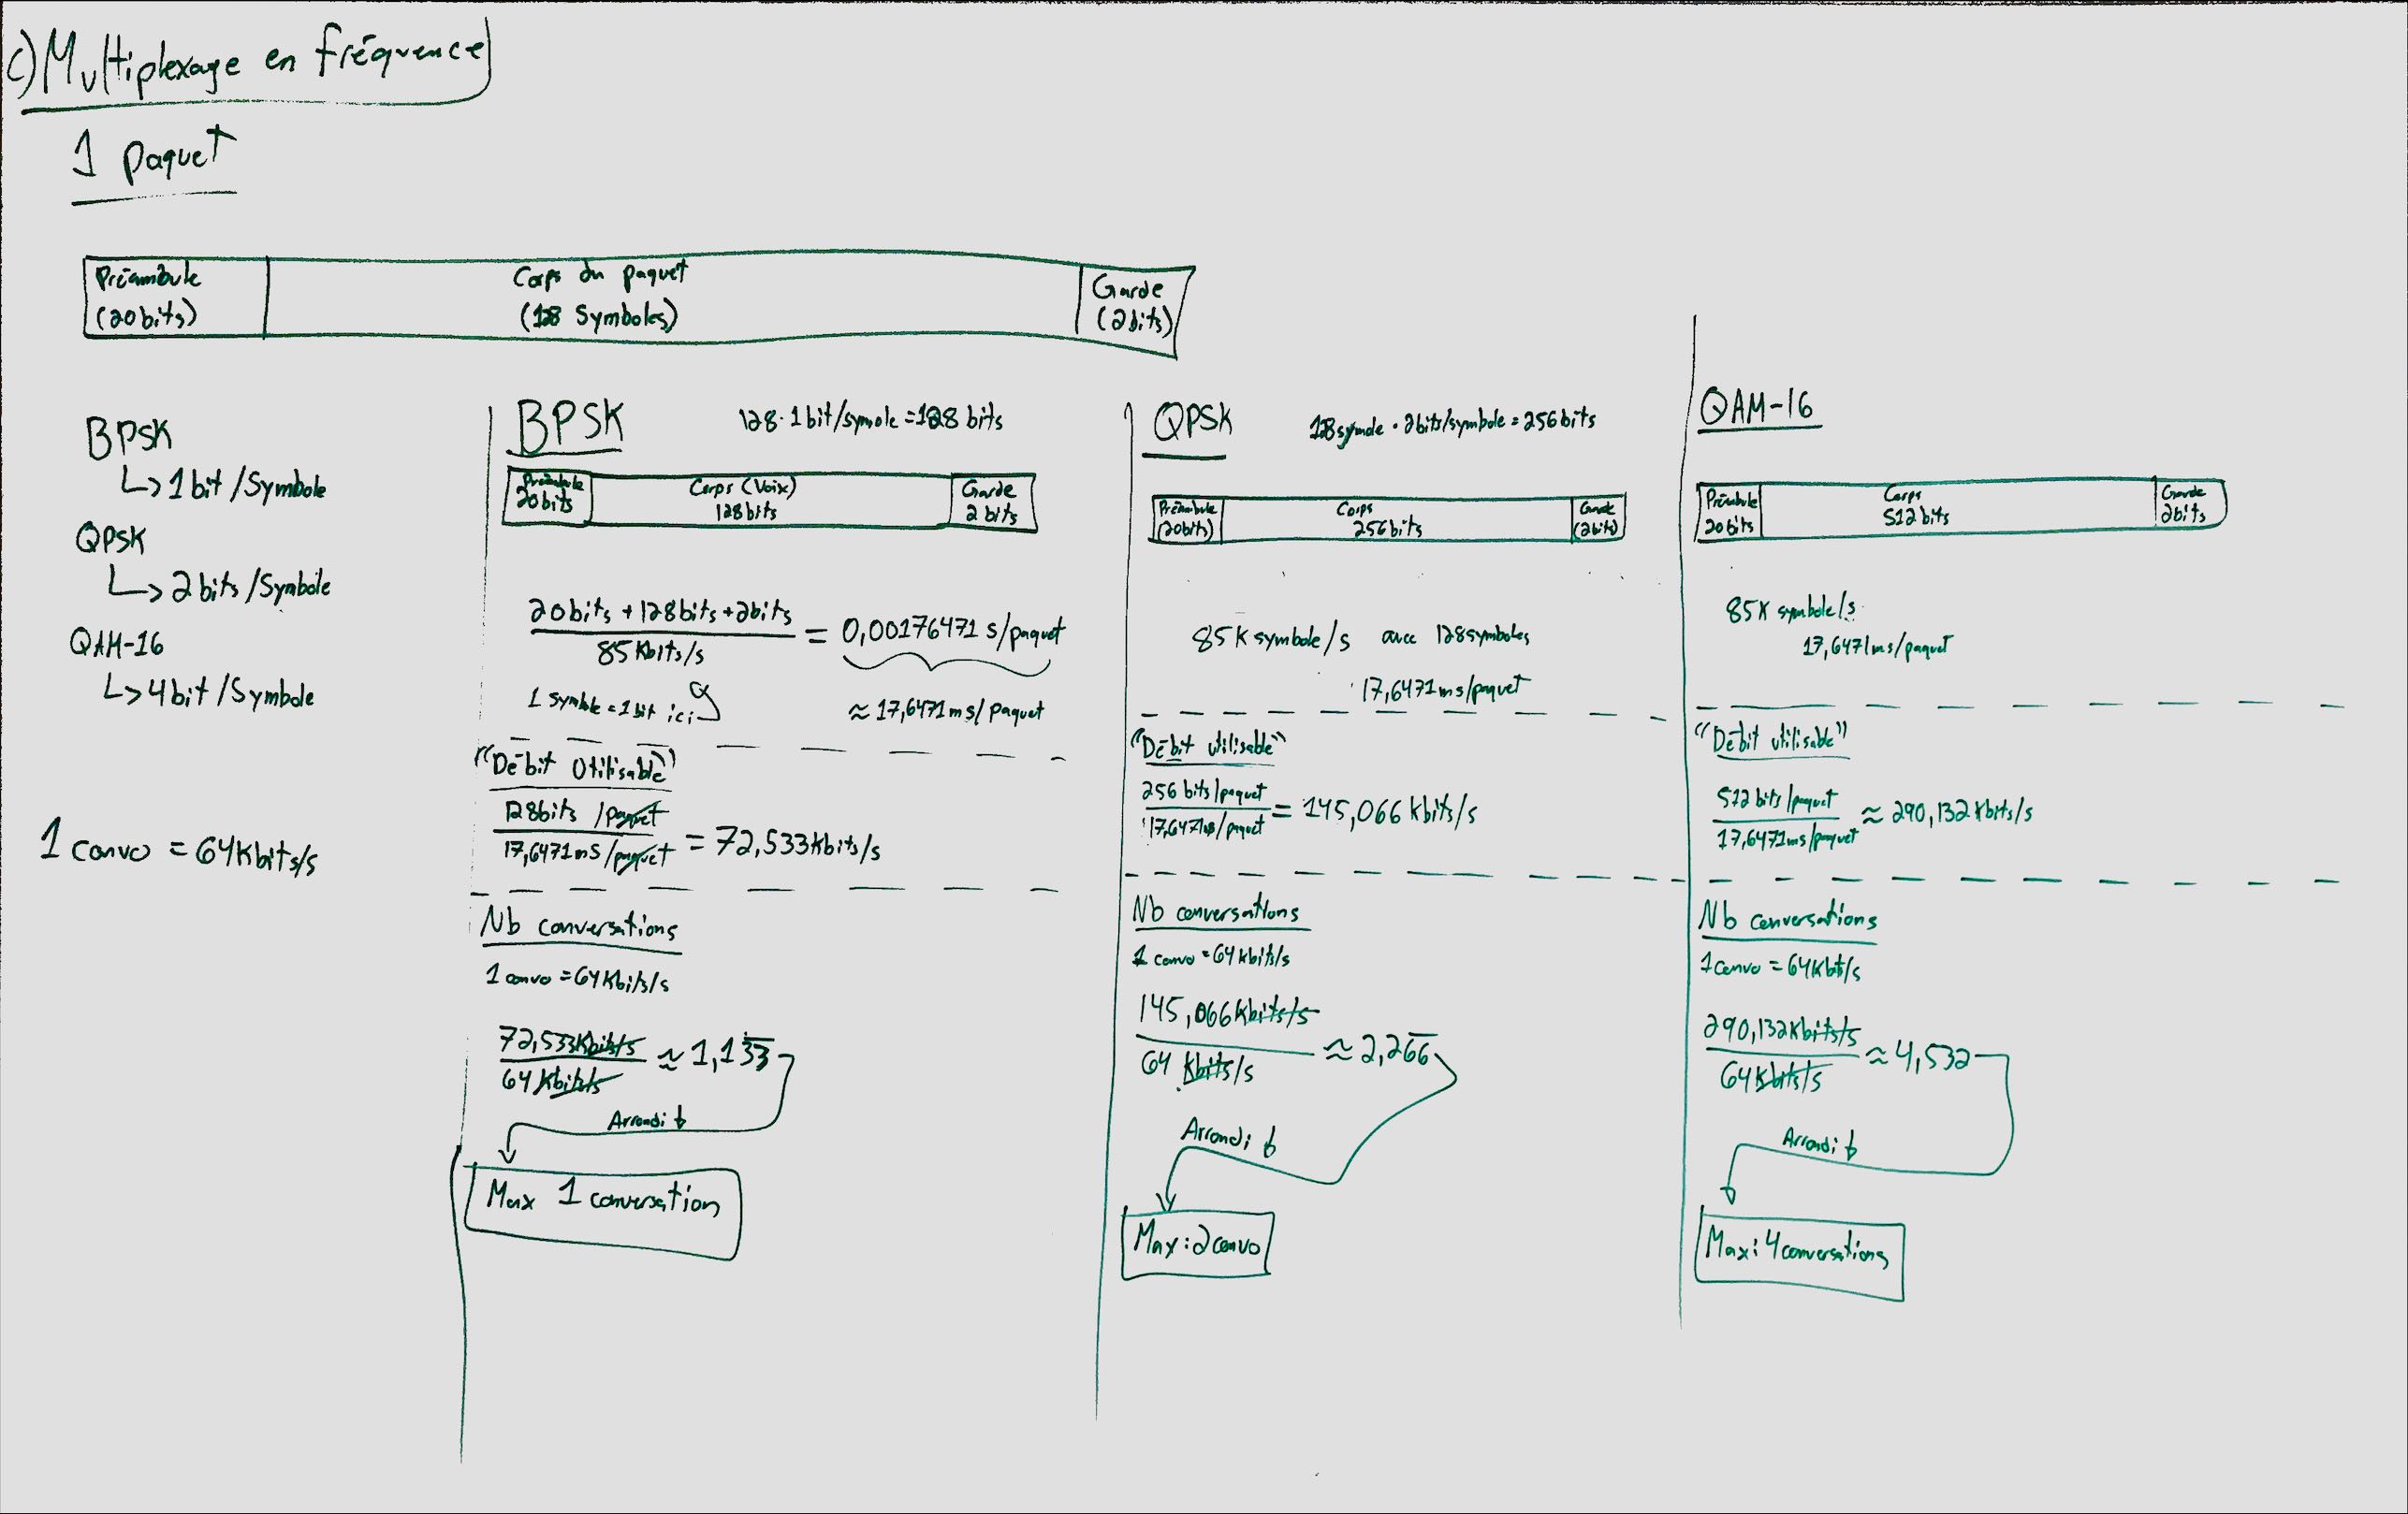 c) Multiplexage en fréquence
1 paquet
Préambule
(20bits)
Corps du paquet
(128 Symboles)
Garde
(2bits)
BPSK
↳ 1bit/Symbole
QPSK
↳ 2bits/Symbole
QAM-16
↳ 4bit/Symbole
1 convo = 64Kbits/s
BPSK
128·1bit/symole = 128 bits
Préambule
20bits
Corps (Voix)
128bits
Garde
2 bits
20bits + 128bits + 2bits
85Kbits/s
= 0,00176471 s/paquet
1 symble = 1 bit ici
≈ 17,6471 ms/paquet
"Débit Utilisable"
128bits /paquet
17,6471ms/paquet
= 72,533Kbits/s
Nb conversations
1 convo = 64Kbits/s
72,533Kbits/s
64Kbits/s
≈ 1,133
Arrondi ↓
Max 1 conversation
QPSK
128symole · 2bits/symbole = 256bits
Préambule
(20bits)
Corps
256bits
Garde
(2bits)
85K symbole/s avec 128symboles
17,6471ms/paquet
"Débit utilisable"
256 bits/paquet
17,6471ms/paquet
= 145,066 kbits/s
Nb conversations
1 convo = 64kbits/s
145,066Kbits/s
64 Kbits/s
≈ 2,266
Arrondi ↓
Max: 2convo
QAM-16
Préambule
20bits
Corps
512bits
Garde
2bits
85K symbole/s
17,6471ms/paquet
"Débit utilisable"
512 bits/paquet
17,6471ms/paquet
≈ 290,132Kbits/s
Nb conversations
1 convo = 64Kbit/s
290,132Kbits/s
64Kbits/s
≈ 4,532
Arrondi ↓
Max: 4 conversations